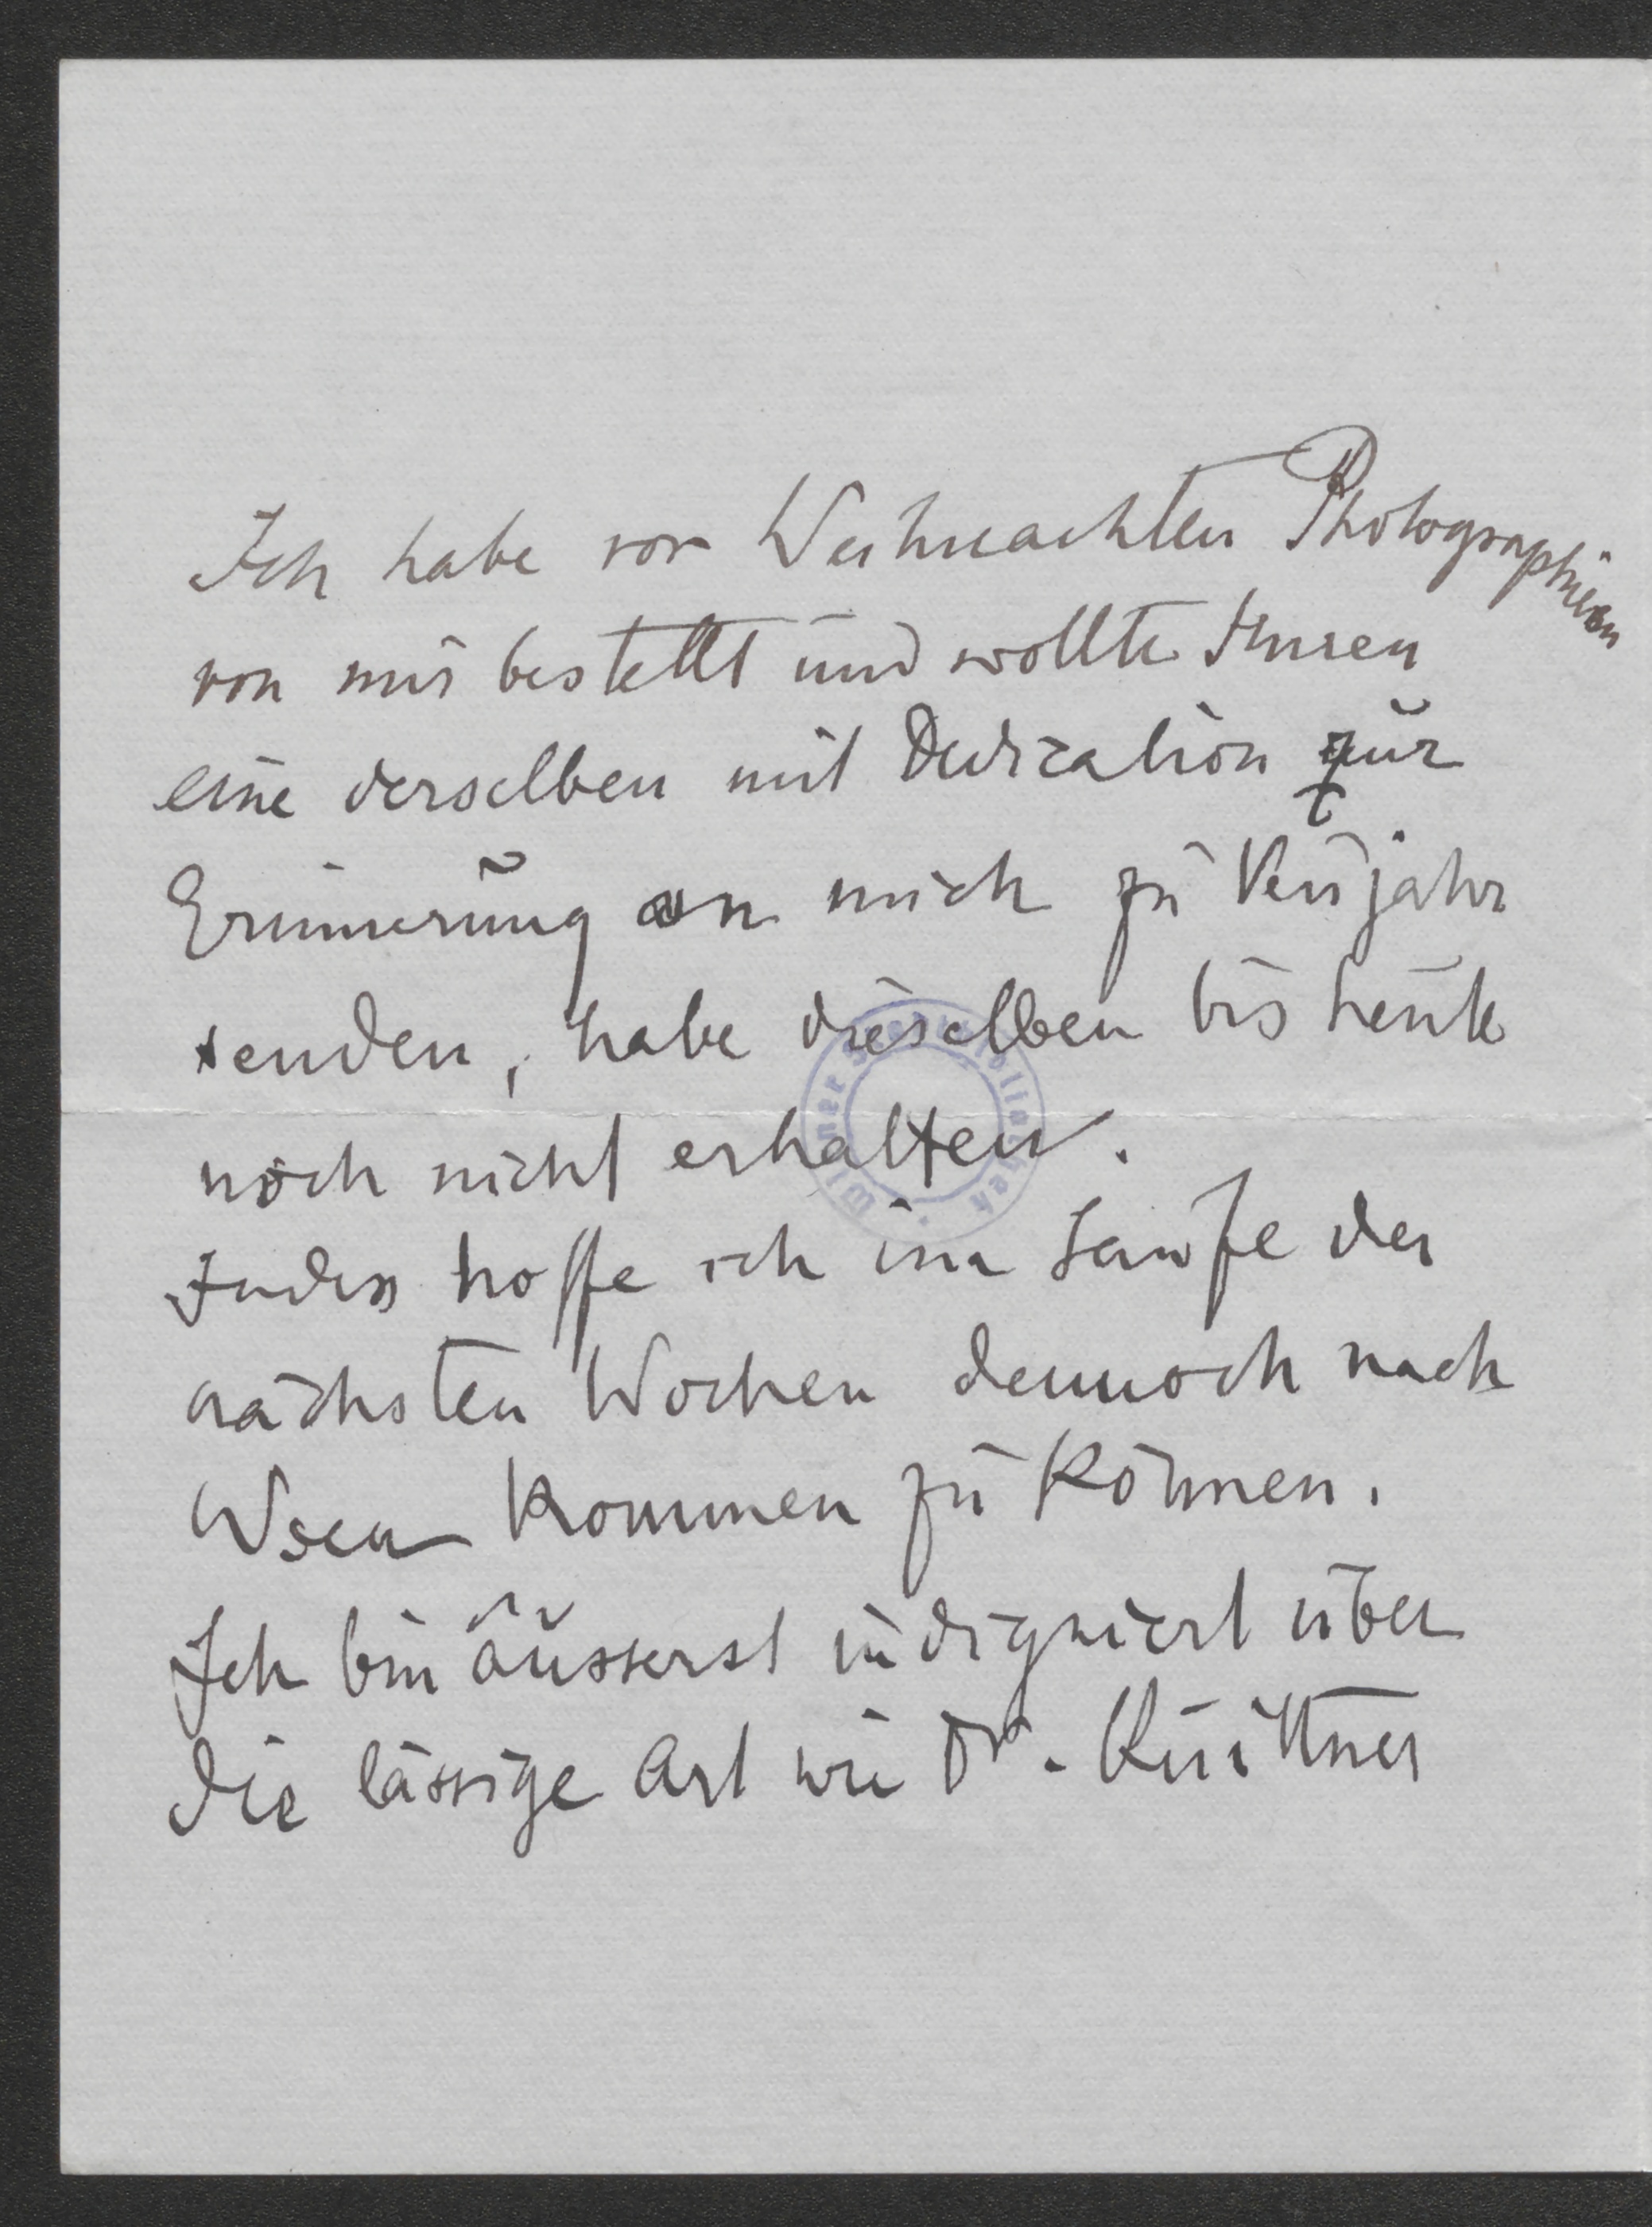 Ich habe vor Weihnachten Photographien
von mir bestellt und wollte Ihnen
eine derselben mit Dedication zur
Erinnerung an mich zu Neujahr
senden, habe dieselben bis heute
noch nicht erhalten.
Indess hoffe ich im Laufe der
nächsten Wochen dennoch nach
Wien kommen zu können.
Ich bin äusserst indigniert über
die lässige Art wie Dr.
Wiener Stadtbibliothek